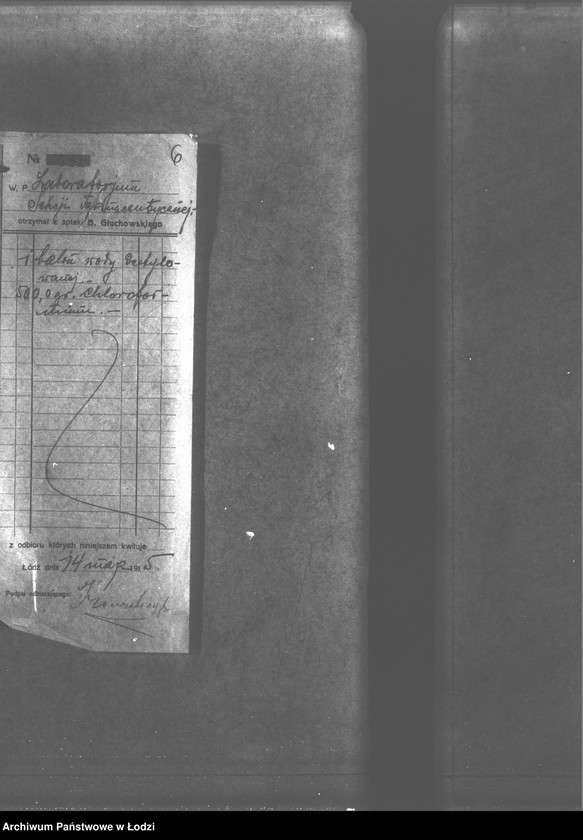 № 6
W. P. Laboratorjum
Sekcji Farmaceutycznej
otrzymał z apteki B. Głuchowskiego
1 balon wody destylo-
wanej. -
500,0 gr. Chlorofor-
z odbioru których niniejszem kwituje
Łódź dnia 14 maja 1915.
Podpis odbierającego:
Archiwum Państwowe w Łodzi